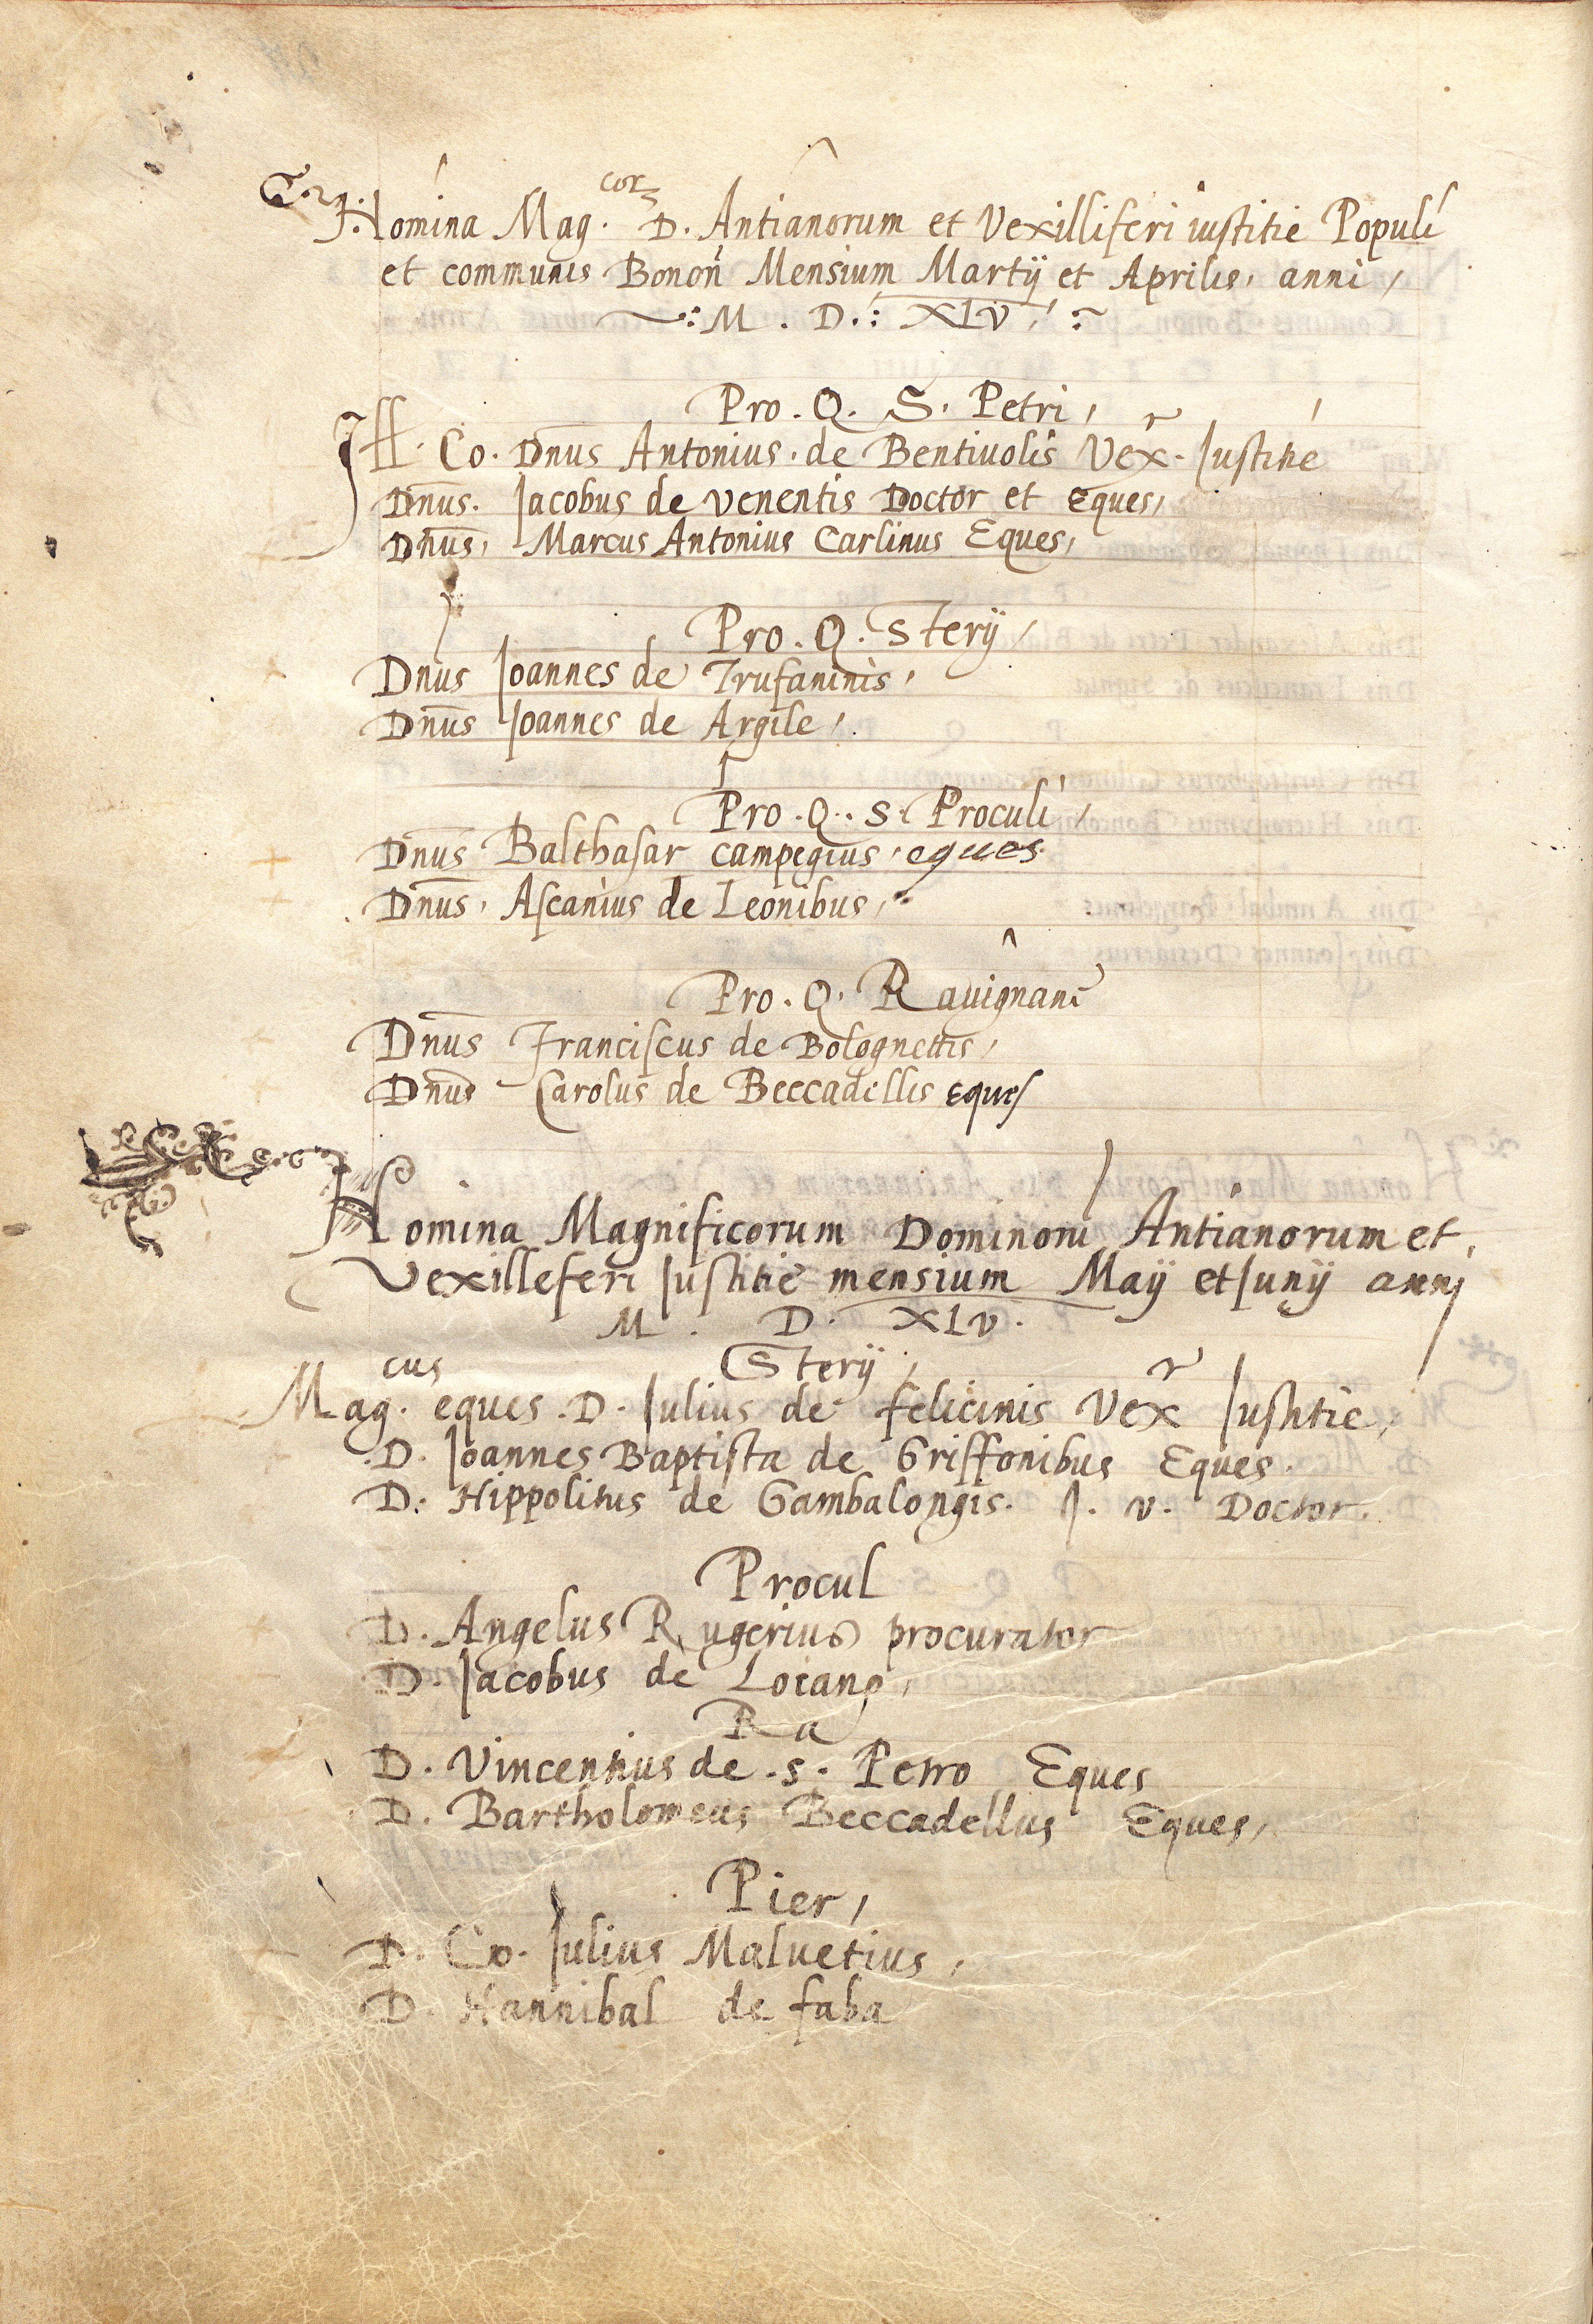 Nomina Mag.cor D. Antianorum et Vexilliferi iustitie Populi
et communis Bonoñ Mensium Martij et Aprilis, anni,
M . D . XLV
Pro . Q . S . Petri,
Ill. Co. Dnus Antonius de Bentiuolis Vexr Justitie
Dnus. Jacobus de venentis Doctor et Eques,
Dnus, Marcus Antonius Carlinus Eques,
Pro . Q . Sterij,
Dnus Joannes de Trufaninis,
Dnus Joannes de Argile,
Pro . Q . S . Proculi,
Dnus Balthasar campegius, eques.
Dnus, Ascanius de Leonibus,
Pro . Q . Rauignani
Dnus Franciscus de Bolognettis,
Dnus Carolus de Beccadellis Eques
Nomina Magnificorum Dominorū Antianorum et,
Vexilleferi Justitie mensium Maij et Junij anni
M . D . XLV .
Sterij,
Mag.cus eques . D . Julius de felicinis Vexr Justitie,
D. Joannes Baptista de Griffonibus Eques.
D. Hippolitus de Gambalongis. J. v. Doctor.
Procul
D. Angelus Rugerius procurator
D. Jacobus de Loiano,
Ra
D. Vincentius de .s. Petro Eques
D. Bartholomeus Beccadellus Eques,
Pier,
D. Co. Julius Maluetius,
D. Hannibal de faba